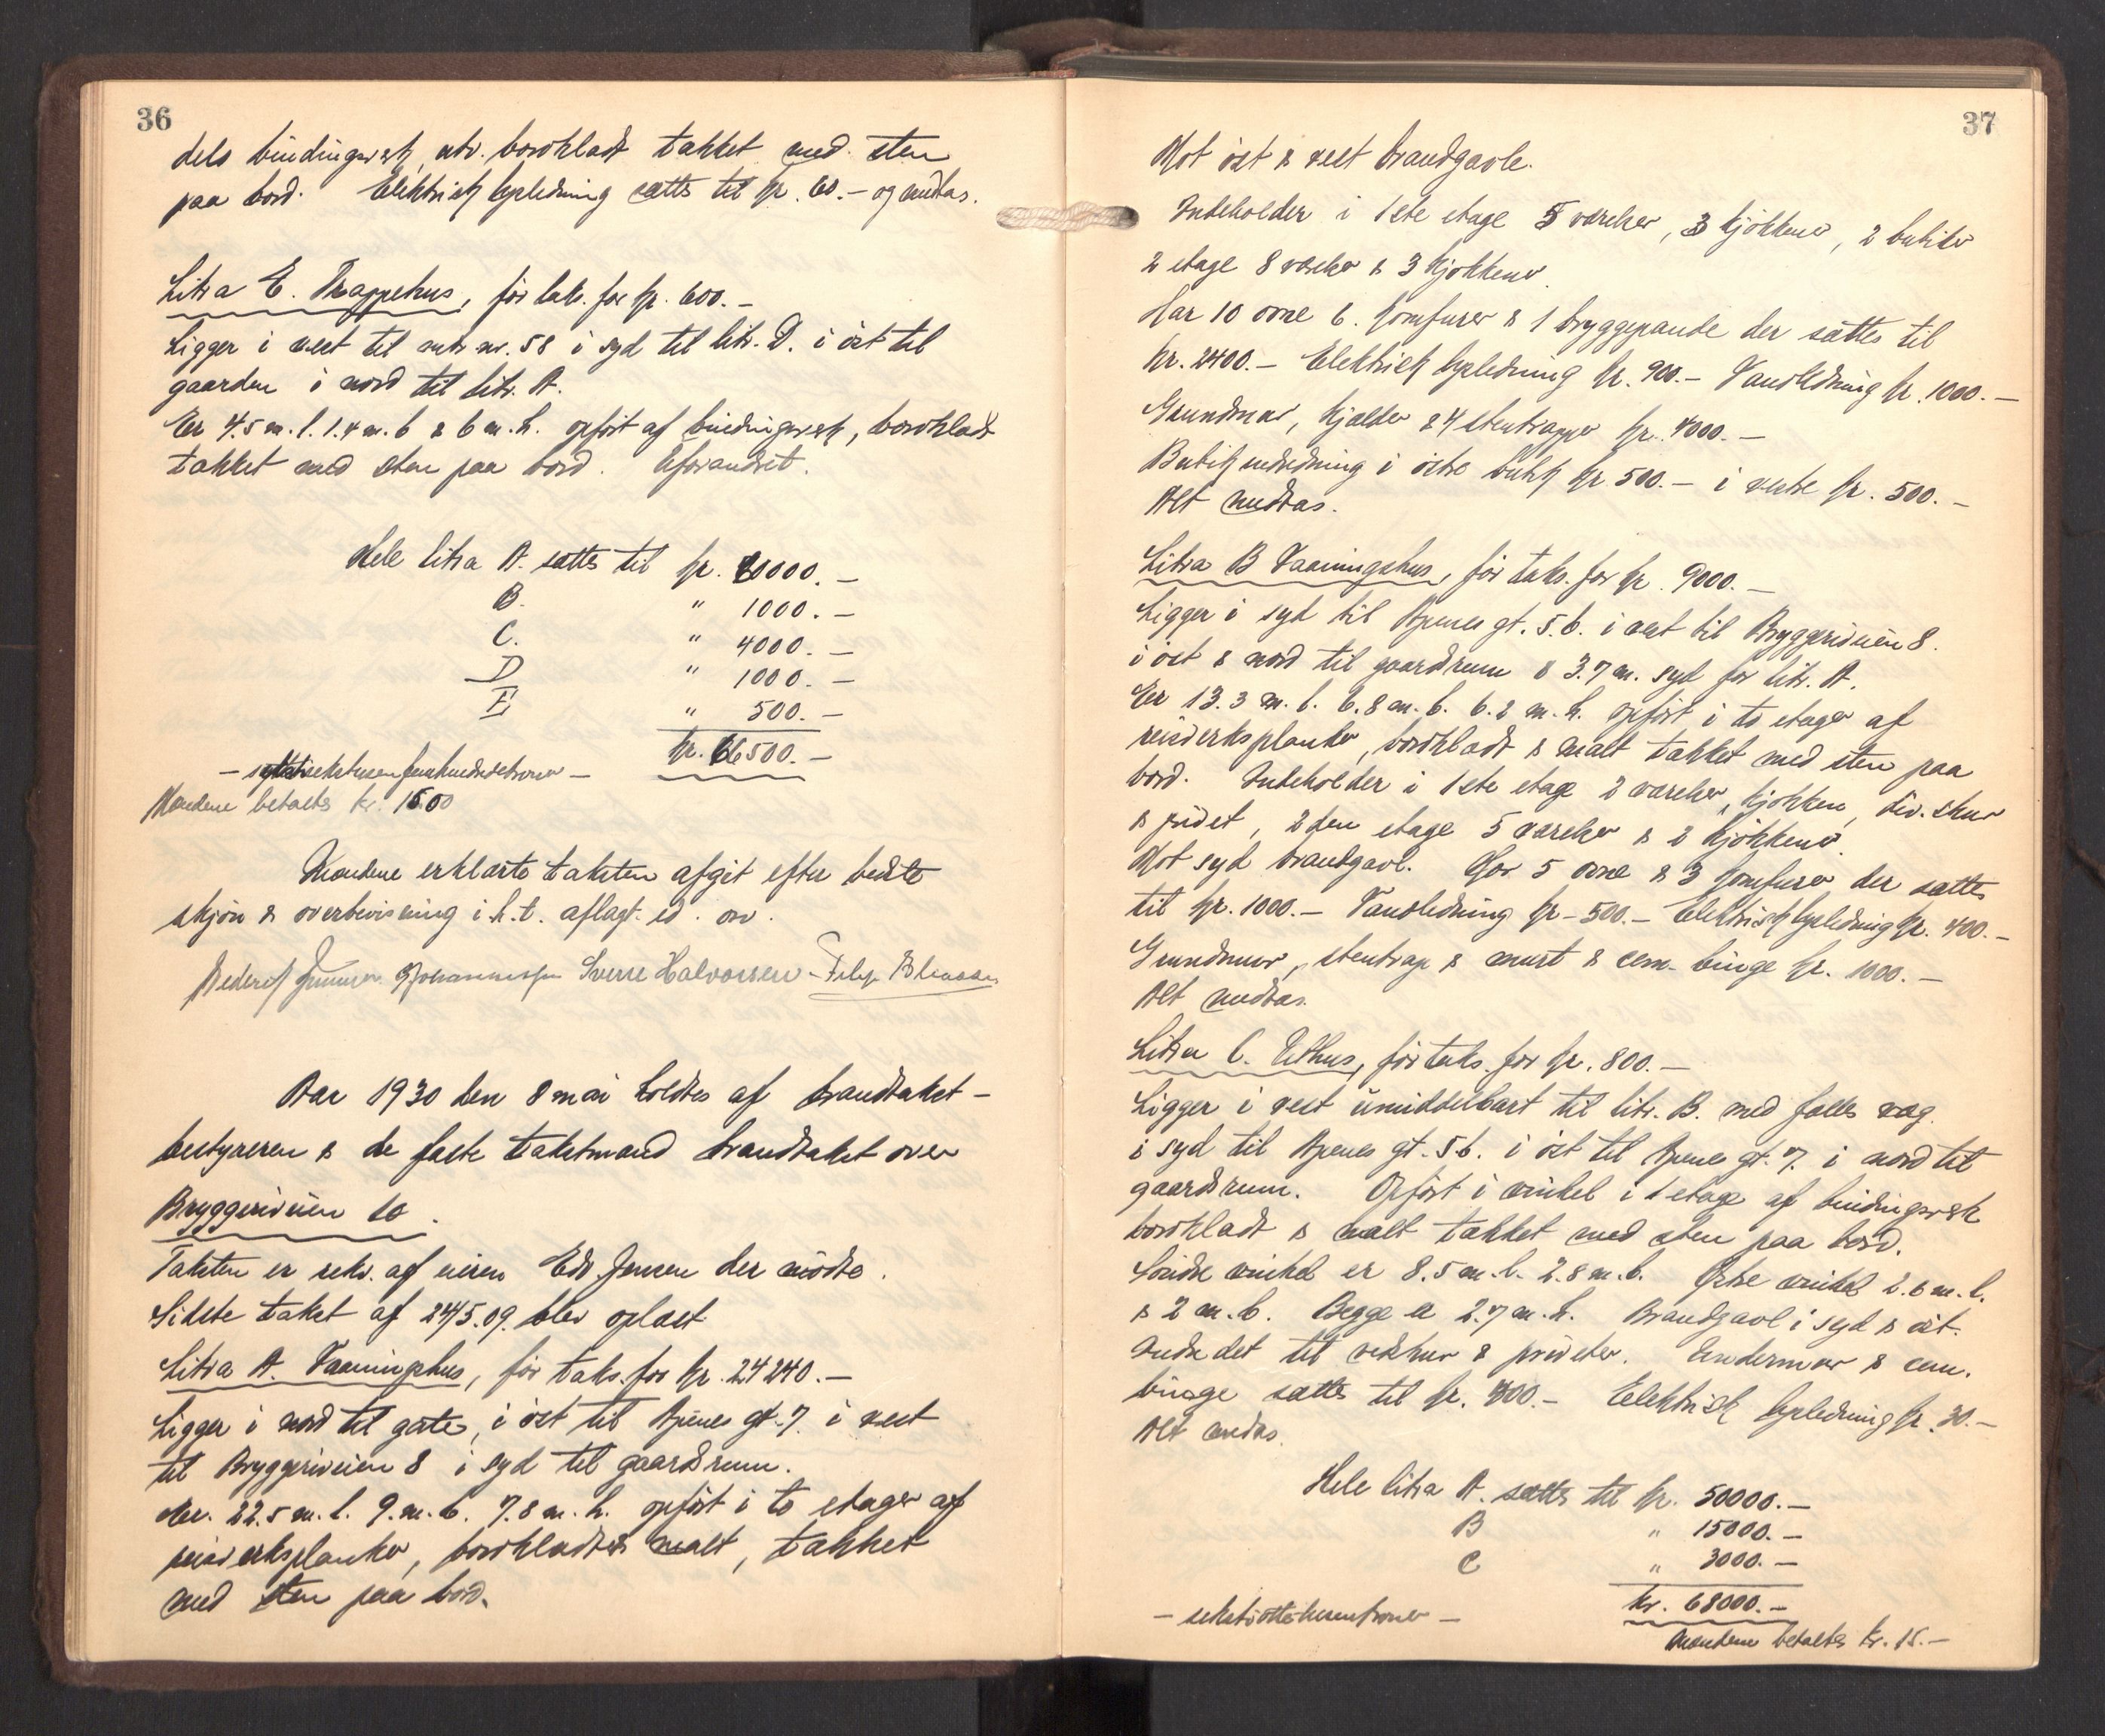 36
dels bindingsverk, utv. bordklædt tækket med sten
paa bord. Elektrisk lysledning sættes til kr. 60.- og medtas.
Litra E. Trappehus, før taks. for kr. 600.-
Ligger i vest til mtr. nr. 58 i syd til litr. D. i øst til
gaarden i nord til litr. A.
Er 4.5 m. l. 1.4 m. b & 6 m. h. opført af bindingsverk, bordklædt
tækket med sten paa bord. Uforandret.
Hele litra A. sættes til kr. 60000.-
B. " 1000.-
C. " 4000.-
D " 1000.-
E " 500.-
kr. 66500.-
- sekstisekstusenfemhundredekroner -
Mændene betaltes kr. 15.00
Mændene erklærte taksten afgit efter bedste
skjøn & overbevisning i h. t. aflagt ed.
Johannessen Sverre Halvorsen
Aar 1930 den 8 mai holdtes af brandtakst-
bestyreren & de faste takstmænd brandtakst over
Bryggeriveien 10.
Taksten er rekv. af eieren Edv. Jensen der mødte.
Sidste takst af 24/5.09. blev oplæst
Litra A. Vaaningshus, før taks. for kr. 24240.-
Ligger i nord til gate, i øst til Apenes gt. 7. i vest
til Bryggeriveien 8 i syd til gaardsrum.
Er 22.5 m. l. 9. m. b. 7.8 m. h. opført i to etager af
reisverksplanker, bordklædt & malt, tækket
med sten paa bord.
37
Mot øst & vest brandgavle.
Indeholder i 1ste etage 5 værelser, 3 kjøkkener, 2 butiker
2 etage 8 værelser & 3 kjøkkener.
Har 10 ovne 6. komfurer & 1 bryggepande der sættes til
kr. 2400.- Elektrisk lysledning kr. 900.- Vandledning kr. 1000.-
Grundmur, kjælder & 4 stentrapper kr. 4000.-
Butikindredning i østre butik kr. 500.- i vestre kr. 500.-
Alt medtas.
Litra B Vaaningshus, før taks. for kr. 9000.-
Ligger i syd til Apenes gt. 5.b. i vest til Bryggeriveien 8.
i øst & nord til gaardsrum & 3.7 m. syd for litr. A.
Er 13.3 m. l. 6.8 m. b. 6.2 m. h. opført i to etager af
reisverksplanker, bordklædt & malt tækket med sten paa
bord. Indeholder i 1ste etage 2 værelser, kjøkken, div. skur
& privet, 2den etage 5 værelser & 2 kjøkkener.
Mot syd brandgavl. Har 5 ovne & 3 komfurer der sættes
til kr. 1000.- Vandledning kr. 500.- Elektrisk lysledning kr. 400.-
Grundmur, stentrap & murt & cem. binge kr. 1000.-
Alt medtas.
Litra C. Uthus, før taks. for kr. 800.-
Ligger i vest umiddelbart til litr. B. med fælles væg.
i syd til Apenes gt. 5b. i øst til Apenes gt. 7. i nord til
gaardsrum. Opført i vinkel i 1 etage af bindingsverk
bordklædt & malt tækket med sten paa bord.
Søndre vinkel er 8.5 m. l. 2.8 m. b. Østre vinkel 2.6 m. l.
& 2 m. b. Begge er 2.7 m. h. Brandgavl i syd & øst.
Indredet til vedskur & priveter. Undermur & cem.
binge sættes til kr. 400.- Elektrisk lysledning kr. 30.-
Alt medtas.
Hele litra A. sættes til kr. 50000.-
B " 15000.-
C " 3000.-
kr. 68000.-
- sekstiottetusenkroner -
Mændene betaltes kr. 15.-